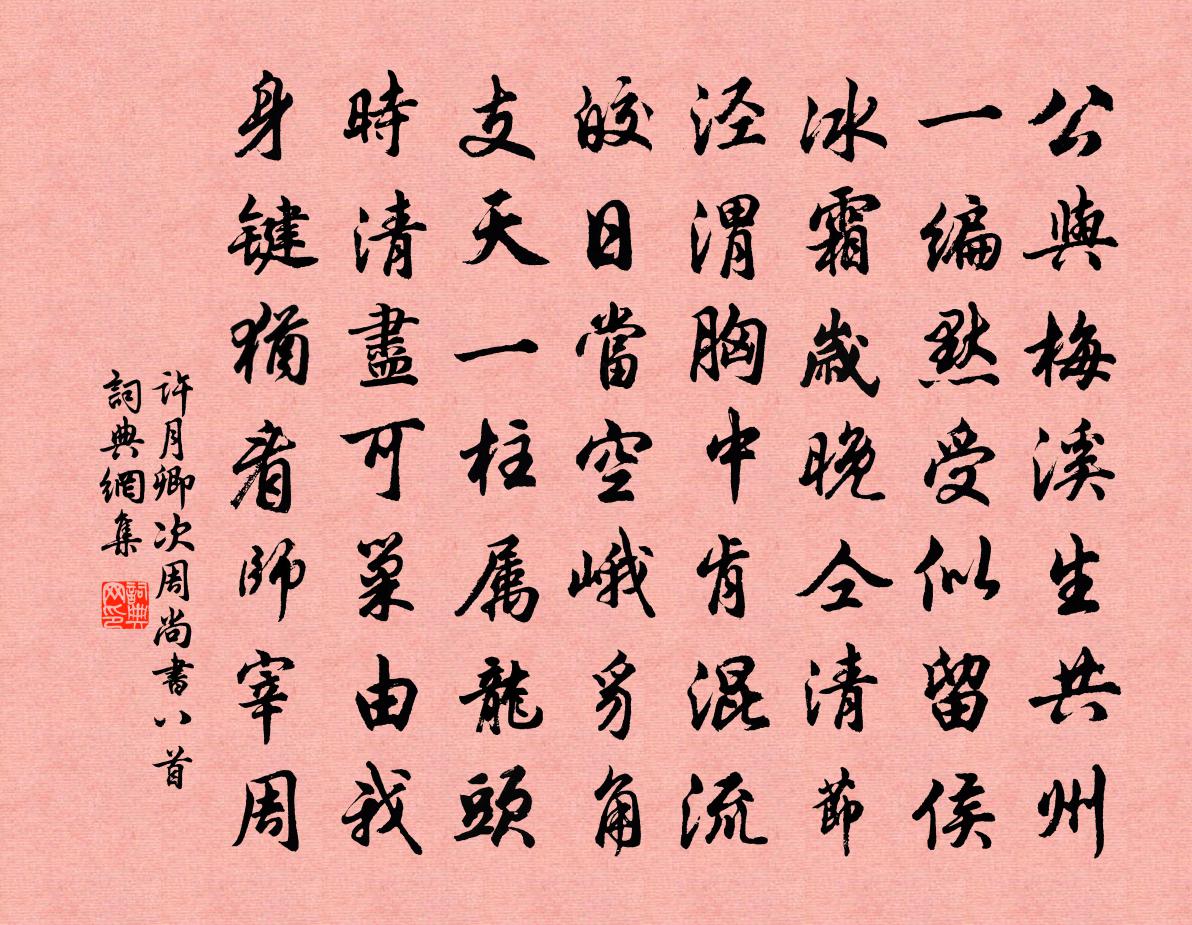 公與梅溪生共州
一编黙受似留侯
冰霜歲晚仝清節
泾渭胸中肯混流
皎日當空峨豸角
支天一柱属龍頭
時清盡可巢由我
身键猶看師宰周
許月卿次周尚書八首
詞典網集
詞典网印